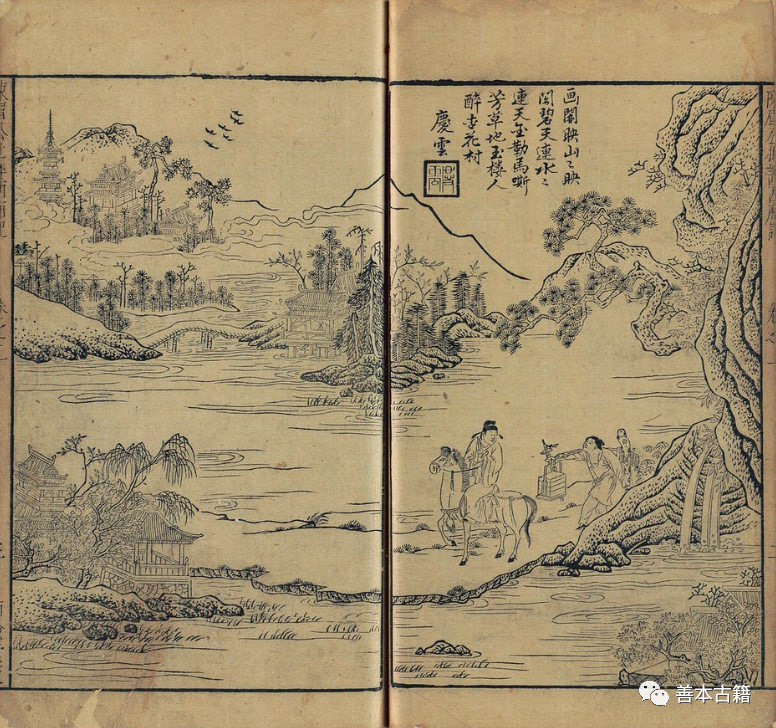 画閣映山々映
閣碧天連水々
連天金勒馬嘶
芳草地玉樓人
醉杏花村
慶雲
善本古籍